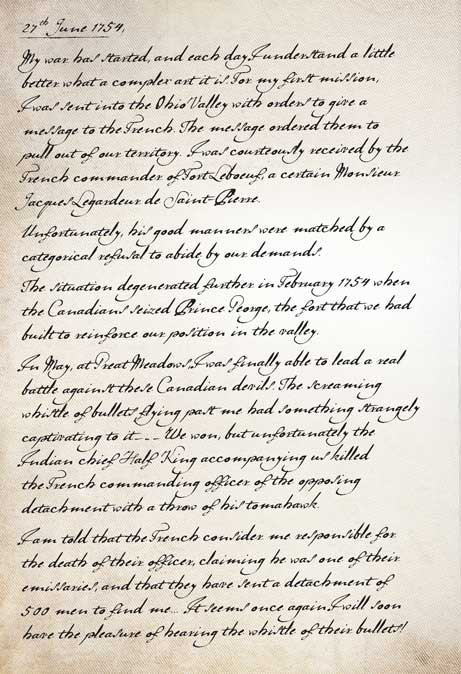 27th June 1754,
My war has started, and each day I understand a little
better what a complex art it is. For my first mission,
I was sent into the Ohio Valley with orders to give a
message to the French. The message ordered them to
pull out of our territory. I was courteously received by the
French commander of Fort Leboeuf, a certain Monsieur
Jacques Legardeur de Saint-Pierre.
Unfortunately, his good manners were matched by a
categorical refusal to abide by our demands.
The situation degenerated further in February 1754 when
the Canadians seized Prince George, the fort that we had
built to reinforce our position in the valley.
In May, at Great Meadows, I was finally able to lead a real
battle against these Canadian devils. The screaming
whistle of bullets flying past me had something strangely
captivating to it... We won, but unfortunately the
Indian chief Half King accompanying us killed
the French commanding officer of the opposing
detachment with a throw of his tomahawk.
I am told that the French consider me responsible for
the death of their officer, claiming he was one of their
emissaries, and that they have sent a detachment of
500 men to find me... It seems once again I will soon
have the pleasure of hearing the whistle of their bullets!